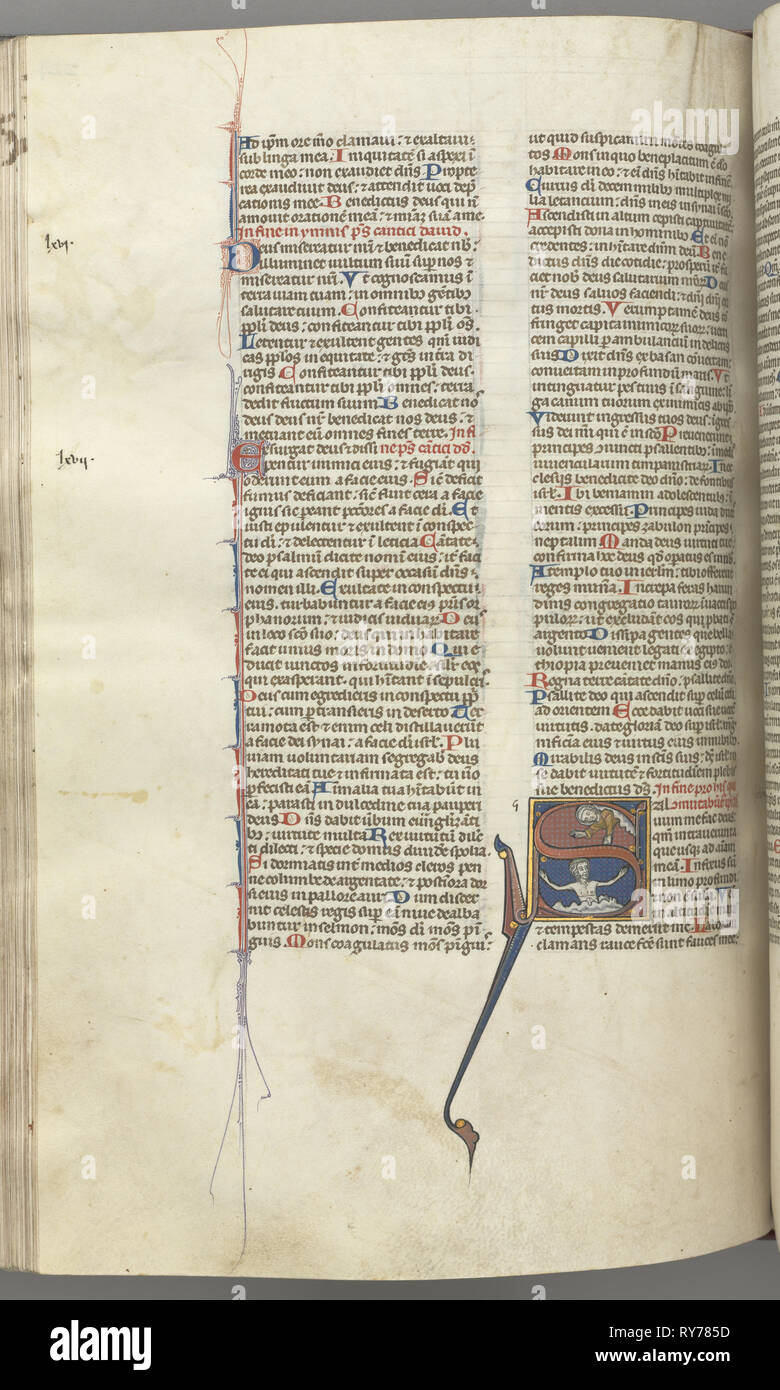 Ad ipm ore meo clamavi: et exaltavi
sub lingua mea. Iniquitatē si aspexi ī
corde meo: non exaudiet dñs. Propte
rea exaudivit deus: et attendit voci dep̄
cationis mee. Benedictus deus qui nō
amovit orationē meā: et miāz suā a me.
In fine in ymnis ps̄ cantici david.
lxvi.
Deus misereatur nr̄i et benedicat nob̄:
illuminet vultum suū sup nos et
misereatur nr̄i. Ut cognoscamus ī
terra viam tuam: in omnibȝ gētibȝ
salutare tuum. Confiteantur tibi
ppl̄i deus: confiteantur tibi ppl̄i oēs.
Letentur et exultent gentes qm̄ iudi
cas pplōs in equitate: et gētes in t̄ra di
rigis. Confiteantur tibi ppl̄i deus.
confiteantur tibi ppl̄i omnes: terra
dedit fructum suum. Benedicat nos
deus deus nr̄ benedicat nos deus: et
metuant eū omnes fines terre. In fi
lxvii.
Exsurgat deus et dissi ne ps̄ cātici dd̄.
pentur inimici eius: et fugiāt qui
oderunt eum a facie eius. Sic deficit
fumus deficiant: sic fluit cera a facie
ignis sic pereant pctōres a facie di. Et
iusti epulentur et exultent ī conspec
tu di: et delectentur ī leticia. Cātate
deo psalmū dicite nomī eius: iter faci
te ei qui ascendit super occasū dñs
nomen illi. Exultate in conspectu
eius. turbabuntur a facie eius pūs or
phanorum: et iudicis viduarū. Deus
in loco scō suo: deus qui inhabitare
facit unius moris in domo. Qui e
ducit vinctos in fortitudine: silr eos
qui exasperant. qui hītant ī sepulcris.
Deus cum egredieris in conspectu ppl̄i
tui: cum ptransieris in deserto. Terra
mota est: et enim celi distillaverūt
a facie dei synai: a facie di isrl̄. Plu
viam voluntariam segregab̄ deus
hereditati tue et infirmata est: tu v̄o
pfecisti eā. Animalia tua hītabūt in
ea: parasti in dulcedine tua pauperi
deus. Dñs dabit v̄bum euāgl̄izāti
bȝ: virtute multa. Rex virtutū dilec
ti dilecti: et speciei domus dividere spolia.
Si dormiatis inter medios cleros pen
ne columbe deargentate: et posteriora dor
si eius in pallore auri. Dum discer
nit celestis reges sup eā nive dealba
buntur in selmon: mōs di mōs pī
guis. Mons coagulatus mōs pīguis:
ut quid suspicamini mōtes coagla
tos. Mons in quo beneplacitum ē deo
habitare in eo: et enī dñs hītabit in finē.
Currus di decem milibȝ multiplex mi
lia letancium: dñs in eis in synai ī scō.
Ascendisti in altum cepisti captivitatē:
accepisti dona in hominibȝ. Et enī nō
credentes: inhītare dñm deū. Bene
dictus dñs die cotidie: prosperū iter fa
ciet nob̄ deus salutarium nr̄or. Deus
nr̄ deus salvos faciendi: et dñi dñi exi
tus mortis. Verumptamē deus cō
fringet capita inimicor suor: verti
cem capilli perambulanciū in delictis
suis. Dixit dñs ex basan convertam:
convertam in profundū maris. Ut
intinguatur pes tuus ī sanguine: lī
ga canum tuorum ex inimicis ab ipō.
Viderunt ingressus tuos deus: īgres
sus dei mei qui ē in scō. Prevenerunt
principes cōiuncti psallentibȝ: ī medio
iuvencularum timpanistriar. In ec
clesiis benedicite deo dño: de fontibus
isrl̄. Ibi beniamin adolescentulus: ī
mentis excessu. Principes iuda duces
eorum: principes zabulon prīcipes
neptalim. Manda deus virtuti tue:
confirma hoc deus qd̄ opatus es in nob̄.
A templo tuo in ierlm̄: tibi offerent
reges munera. Increpa feras harun
dinis congregatio tauror ī vaccis po
pulor: ut excludant eos qui probati sunt
argento. Dissipa gentes que bella
volunt: venient legati ex egipto. e
thiopia preveniet manus eius deo.
Regna terre cātate deo: psallite dño.
Psallite deo qui ascendit sup celū celi
ad orientem. Ecce dabit voci sue vocē
virtutis. date gloriam deo sup isrl̄: mag
nificencia eius et virtus eius in nubibȝ.
Mirabilis deus in scīs suis: deus isrl̄ ip
se dabit virtutē et fortitudinem plebis
sue benedictus deus. In fine pro his qui
Salvum me fac deus:
qm̄ intraverunt
aque usque ad aīam
meā. Infixus sum
in limo profundi
et tempestas demersit me. Lavo
clamans rauce fc̄e sunt fauces mee:
alamy
alamy
Image ID: RY785D
www.alamy.com